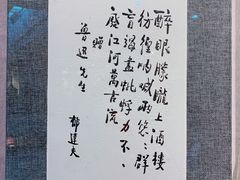 醉眼朦朧上酒樓
彷徨吶喊兩悠々群
盲竭盡蚍蜉力不々
廢江河萬古流
贈
魯迅先生
郁達夫